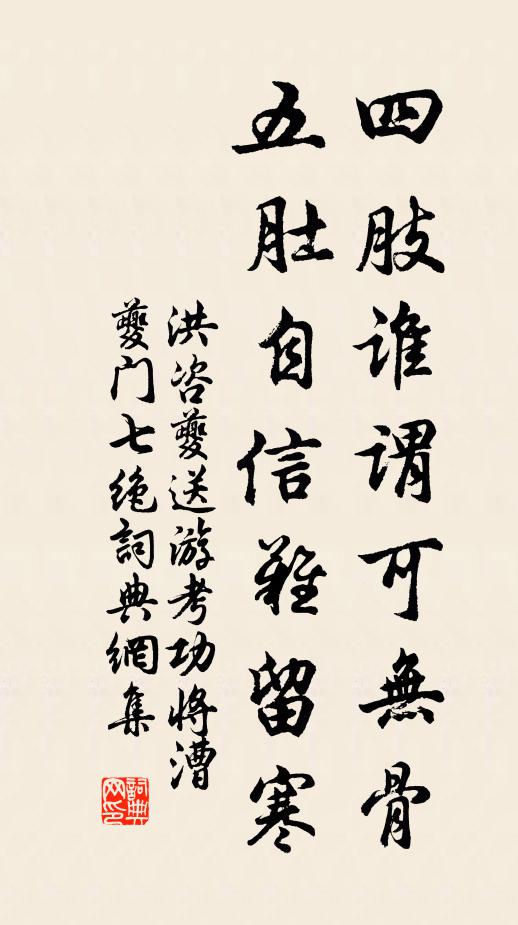 四肢誰謂可無骨
五肚自信難留寒
洪咨夔送游考功將漕
夔門七絶詞典網集
詞典网印